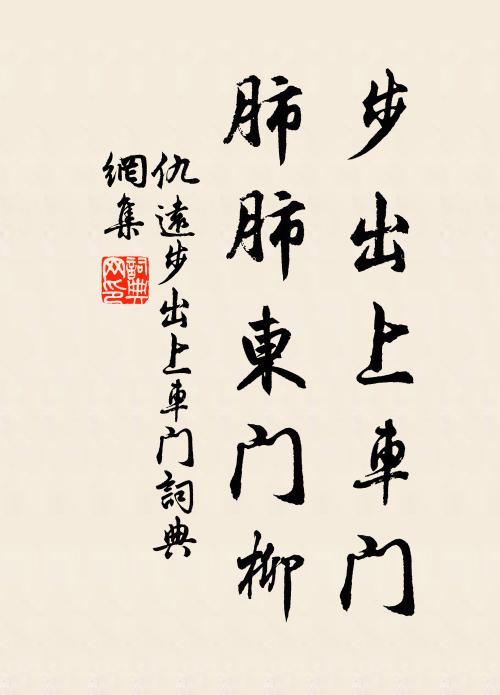 步出上車门
肺肺東门柳
仇遠步出上車门詞典
網集
詞典
网印